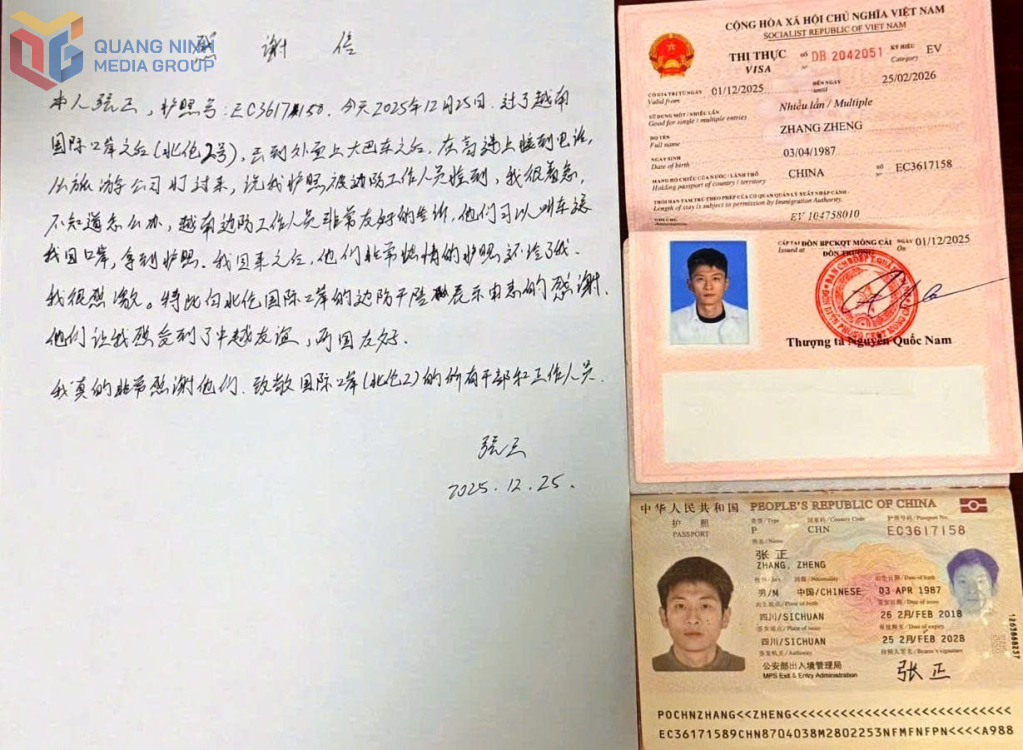 QUANG NINH
MEDIA GROUP
感 谢 信
本人张正，护照号：EC3617158. 今天2025年12月25日. 过了越南
国际口岸之后（北仑2号），去到外面上大巴车之后. 在高速上接到电话，
从旅游公司打过来，说我护照被边防工作人员捡到，我很着急，
不知道怎么办，越南边防工作人员非常友好的告诉，他们可以叫车送
我回口岸，拿到护照. 我回来之后，他们非常热情的护照还给了我.
我很感激。特此向北仑国际口岸的边防干陪 表示由衷的感谢.
他们让我感受到了中越友谊，两国友好.
我真的非常感谢他们. 致敬国际口岸（北仑2）的所有干部和工作人员.
张正
2025.12.25.
CỘNG HÒA XÃ HỘI CHỦ NGHĨA VIỆT NAM
SOCIALIST REPUBLIC OF VIET NAM
THỊ THỰC SỐ DB 2042051 KÝ HIỆU EV
VISA Nº Category
CÓ GIÁ TRỊ TỪ NGÀY 01/12/2025 ĐẾN NGÀY 25/02/2026
Valid from until
SỬ DỤNG MỘT / NHIỀU LẦN Nhiều lần / Multiple
Good for single / multiple entries
HỌ TÊN ZHANG ZHENG
Full name
NGÀY SINH 03/04/1987
Date of birth
MANG HỘ CHIẾU CỦA NƯỚC / LÃNH THỔ CHINA SỐ EC3617158
Holding passport of country / territory Nº
THỜI HẠN TẠM TRÚ THEO PHÉP CỦA CƠ QUAN QUẢN LÝ XUẤT NHẬP CẢNH
Length of stay is subject to permission by Immigration Authority.
GHI CHÚ EV 104758010
CẤP TẠI ĐỒN BPCKQT MÓNG CÁI NGÀY 01/12/2025
ĐỒN TRƯỞNG On
Thượng tá Nguyễn Quốc Nam
中华人民共和国 PEOPLE'S REPUBLIC OF CHINA
护 照 类型 / Type 国家码 / Country Code 护照号码 / Passport No.
PASSPORT P CHN EC3617158
姓名 / Name
张 正
ZHANG, ZHENG
性别 / Sex 国籍 / Nationality 出生日期 / Date of birth
男/M 中国/CHINESE 03 APR 1987
出生地点 / Place of birth 签发日期 / Date of issue
四川/SICHUAN 26 2月/FEB 2018
签发地点 / Place of issue 有效期至 / Date of expiry
四川/SICHUAN 25 2月/FEB 2028
签发机关 / Authority 持照人签名 / Bearer's signature
公安部出入境管理局 张正
MPS Exit & Entry Administration
POCHNZHANG<<ZHENG<<<<<<<<<<<<<<<<<<<<<<<<<<<
EC36171589CHN8704038M2802253NFMFNFPN<<<<A988